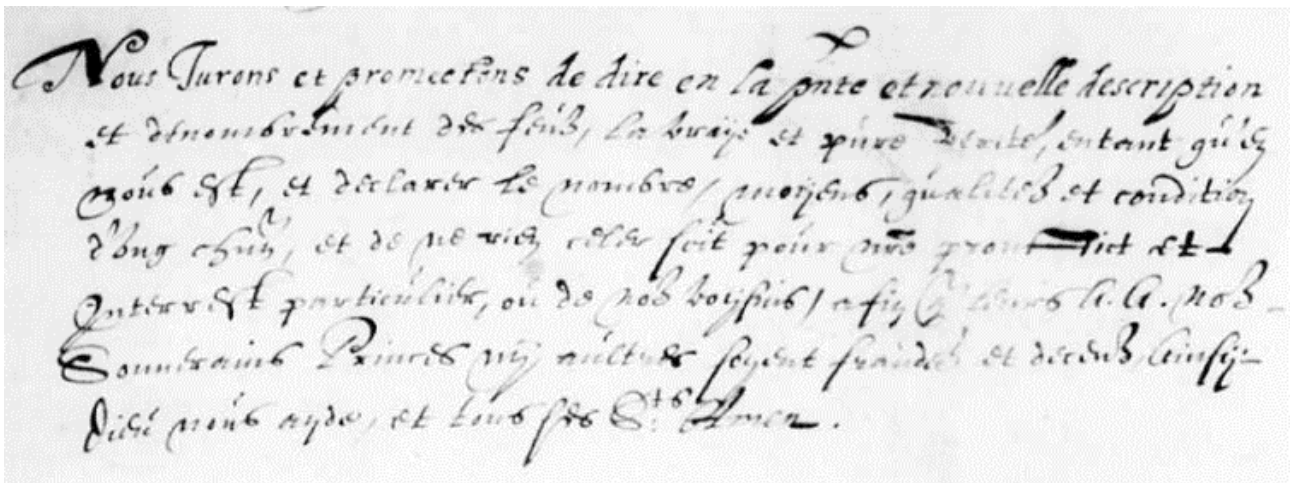 Nous Jurons et promectons de dire en la pnte et nouvelle description
et denombrement des feuz, la vraye et pure verité, entant qu'en
nous est, et declarer le nombre, moyens, qualitez et condition
d'ung chun, et de ne rien celer soit pour nre prouffict et
Interrest particulier, ou de noz voysins, afin q leurs A. A. noz
Souverains Princes ny aultres soyent fraudez et deceuz, Ainsy
Dieu nous ayde, et tous ses Sts. Amen.